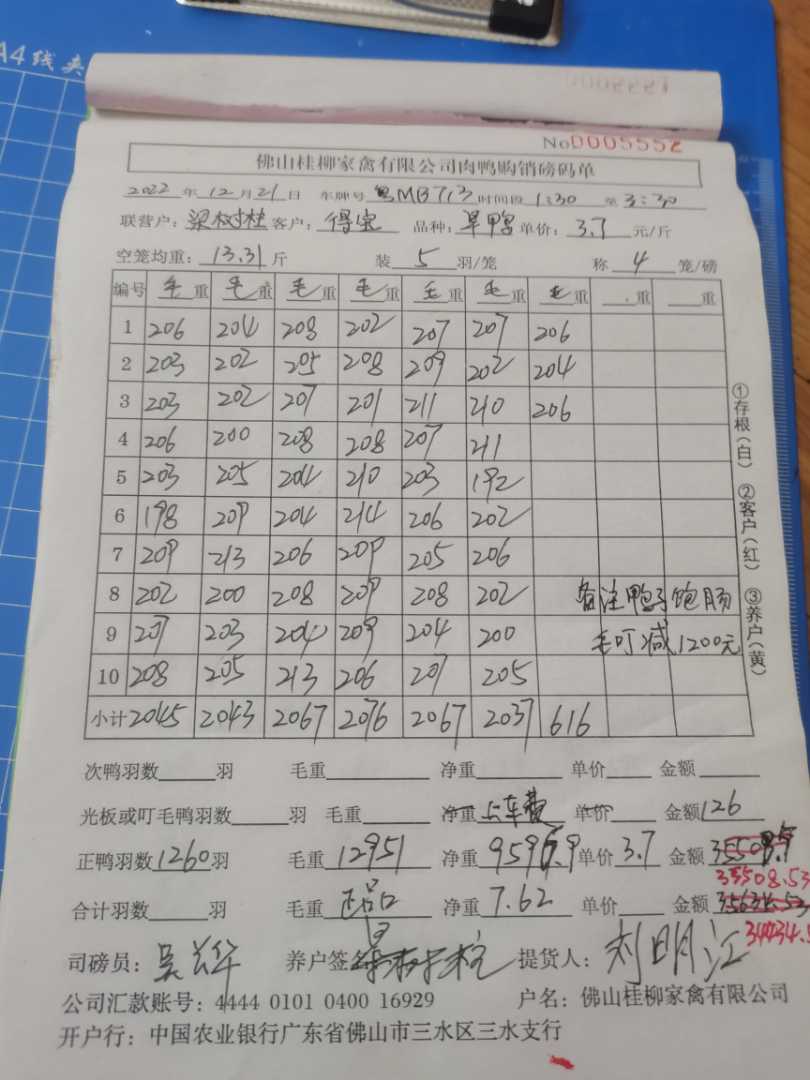 A4线夹
No0005552
佛山桂柳家禽有限公司肉鸭购销磅码单
2022年12月21日 车牌号 粤MB713 时间段 1:30 至 3:30
联营户: 梁树桂 客户: 得宝 品种: 旱鸭 单价: 3.7 元/斤
空笼均重: 13.31 斤 装 5 羽/笼 称 4 笼/磅
编号 毛重 毛重 毛重 毛重 毛重 毛重 毛重 重 重
1 206 204 208 202 207 207 206
2 203 202 205 208 209 202 204
3 203 202 207 201 211 210 206
4 206 200 208 208 207 211
5 203 205 204 210 203 192
6 198 209 204 214 206 202
7 209 213 206 209 205 206
8 202 200 208 209 208 202 备注鸭子饱肠
9 207 203 204 209 204 200 毛叮减1200元
10 208 205 213 206 207 205
小计 2045 2043 2067 2076 2067 2037 616
①存根(白) ②客户(红) ③养户(黄)
次鸭羽数 羽 毛重 净重 单价 金额
光板或叮毛鸭羽数 羽 毛重 净重 上车费 单价 金额 126
正鸭羽数 1260 羽 毛重 12951 净重 9596.9 单价 3.7 金额
35508.53
合计羽数 羽 毛重 净重 7.62 单价 金额 35634.53
司磅员: 养户签名 提货人: 刘明江
公司汇款账号: 4444 0101 0400 16929 户名: 佛山桂柳家禽有限公司
开户行: 中国农业银行广东省佛山市三水区三水支行